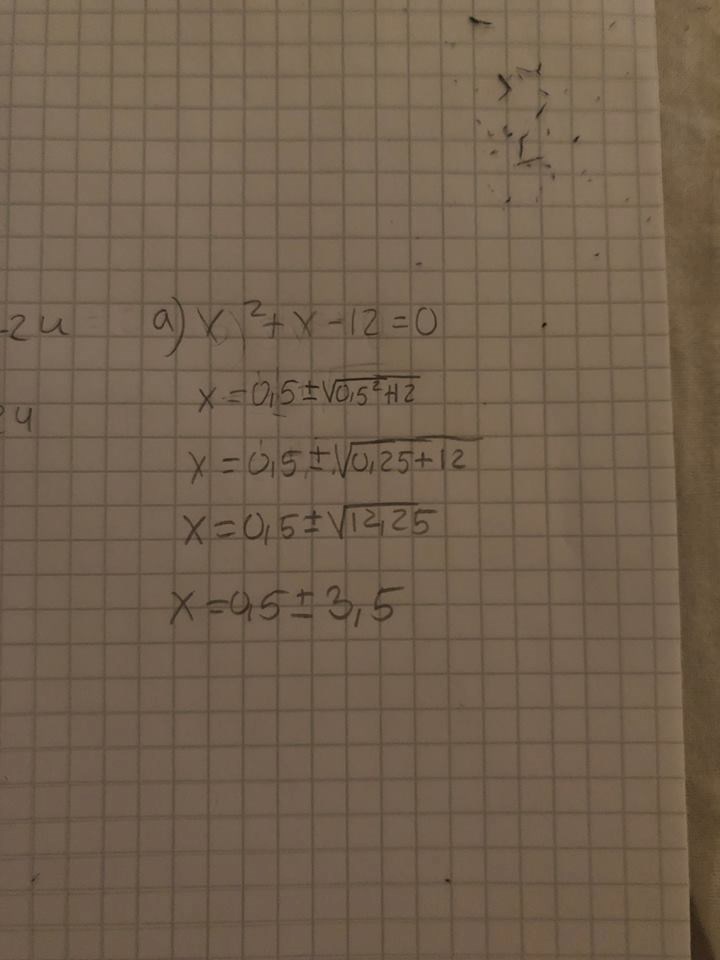 -24
a) x²+x-12=0
x=0,5±√0,5²+12
24
x=0,5±√0,25+12
x=0,5±√12,25
x=0,5±3,5